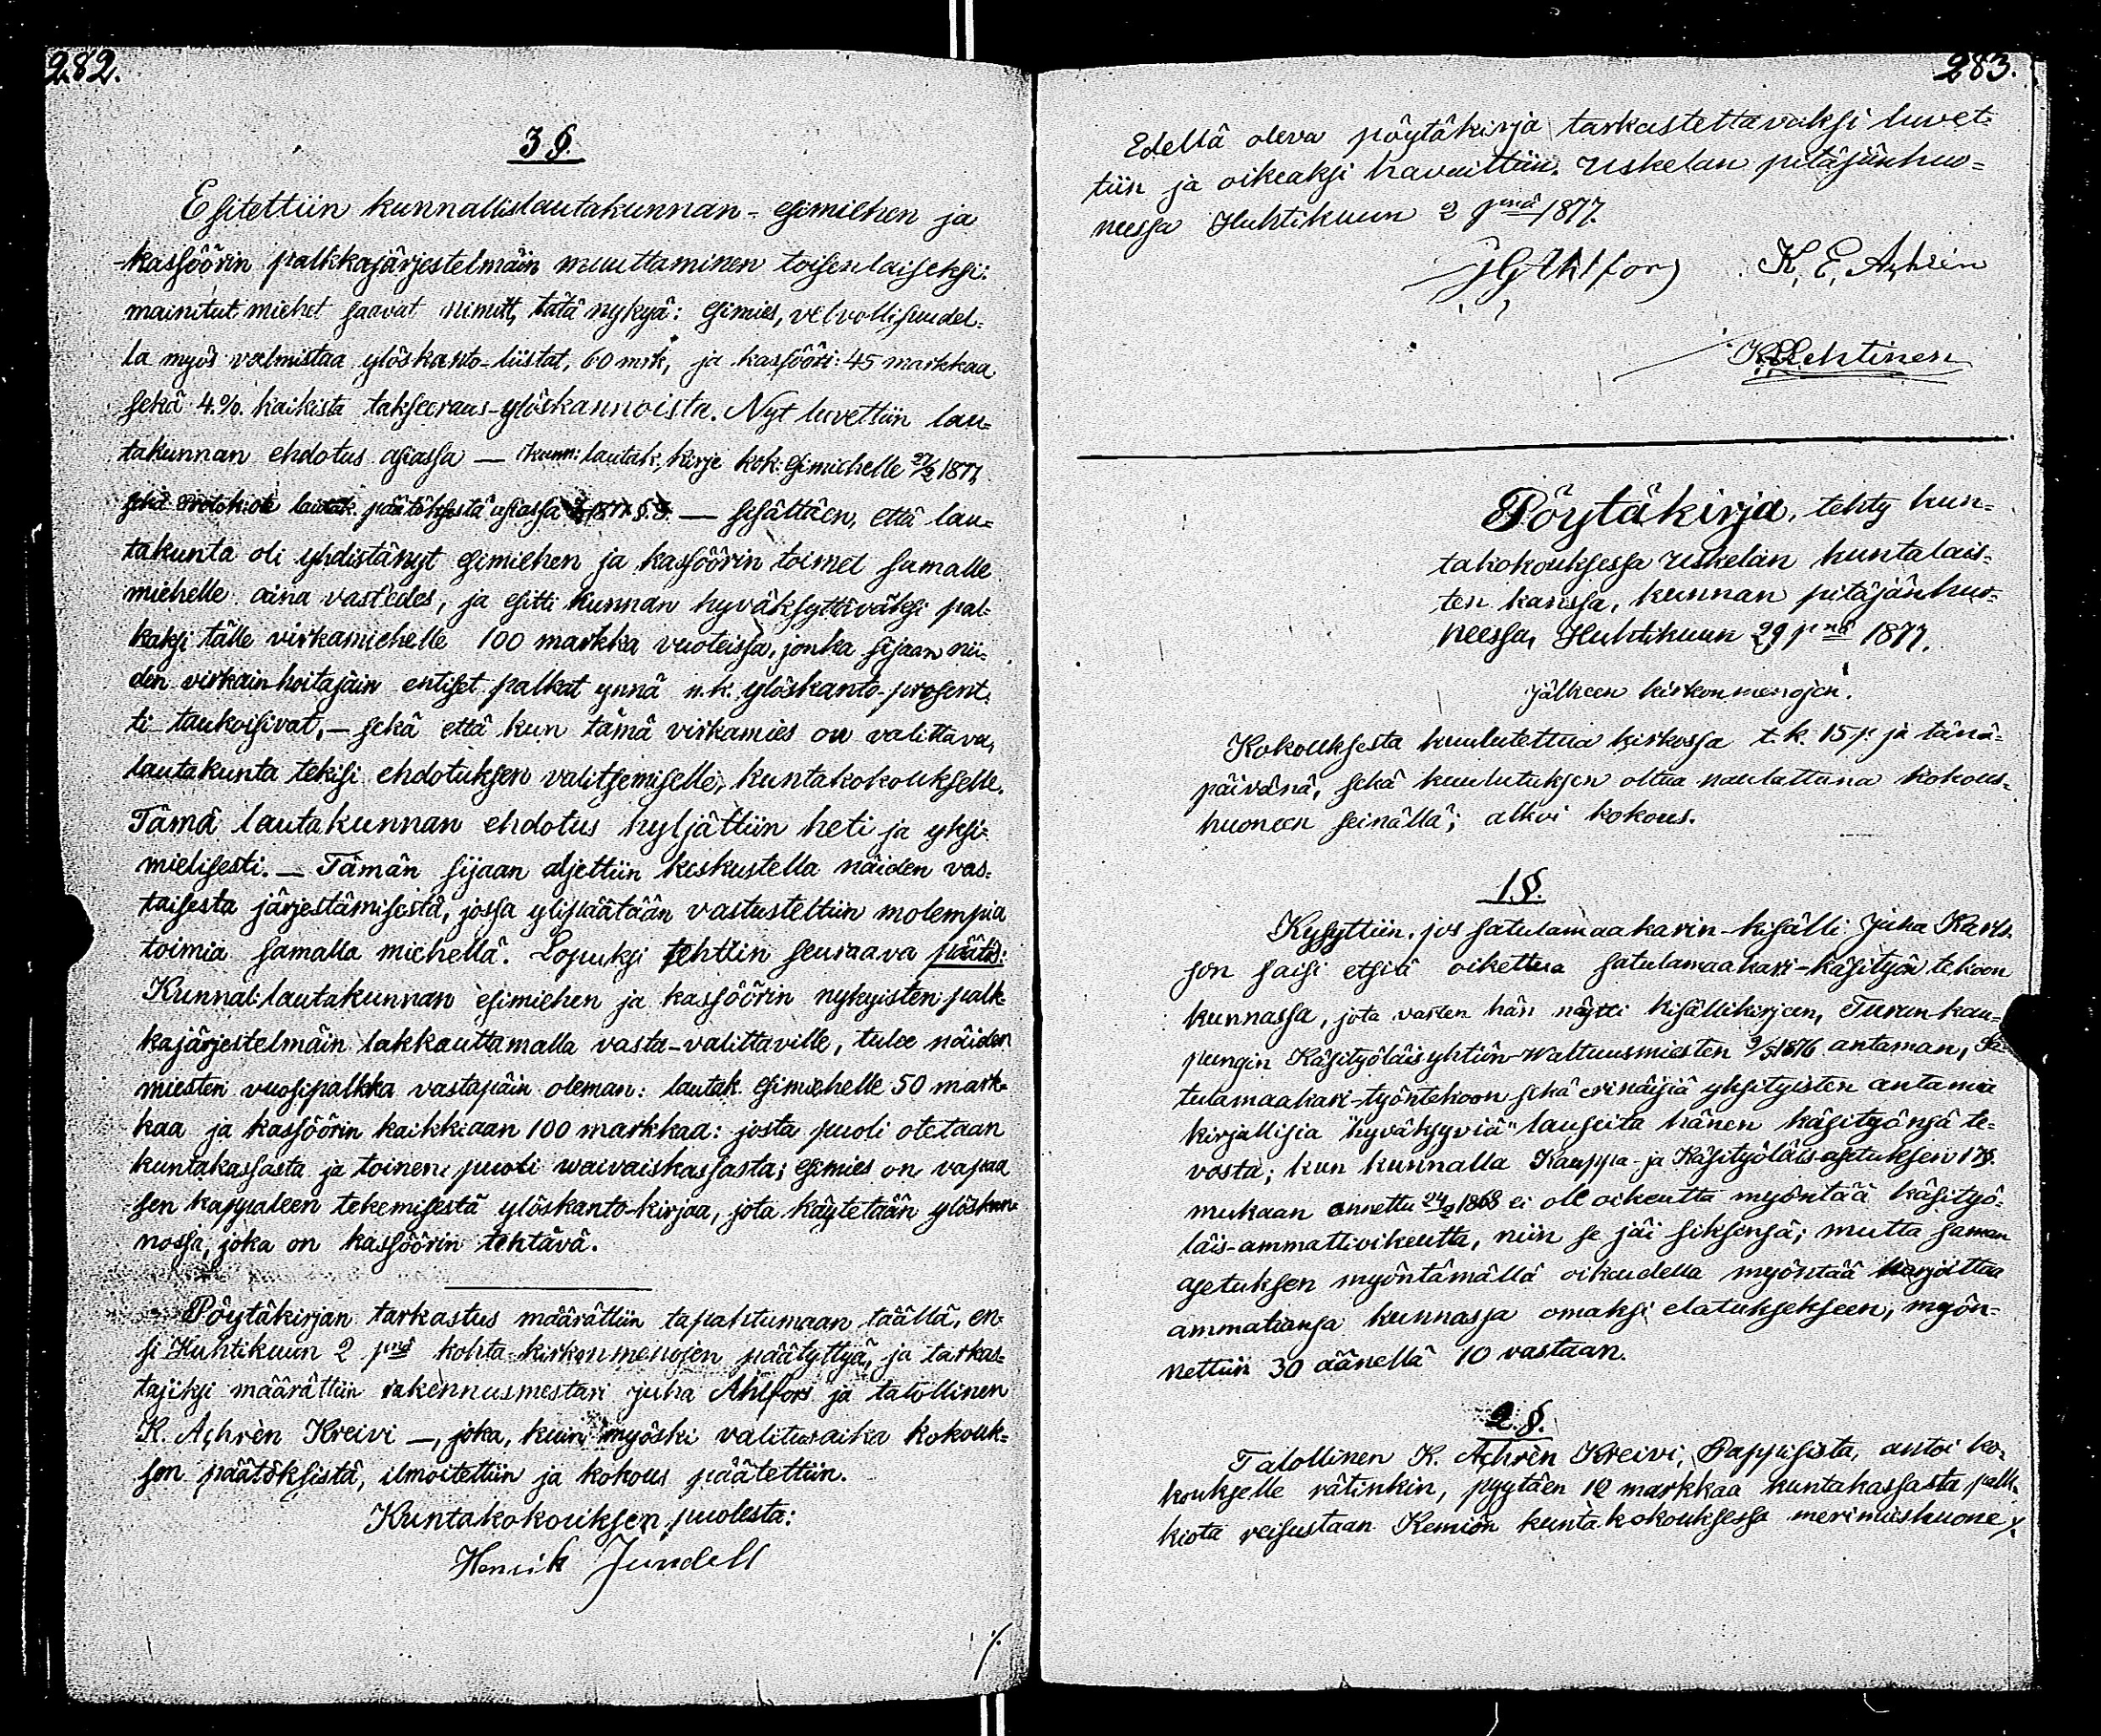 282.
3 §.
Esitettiin kunnallislautakunnan-esimiehen ja
kassöörin palkkajärjestelmäin muuttaminen toisenlaiseksi:
mainitut miehet saavat nimitt, tätä nykyä: esimies, velvollisuudel-
la myös valmistaa ylöskanto-liistat, 60 mrk, ja kassööri: 45 markkaa
sekä 4 %. kaikista takseeraus-ylöskannoista. Nyt luvettiin lau-
takunnan ehdotus asiassa — kunn: lautak. kirje kok: esimiehelle 27/2 1877,
sekä protok: ote lautak. päätöksestä asiassa 1877 § 3. — sisältäen, että lau-
takunta oli yhdistänyt esimiehen ja kassöörin toimet samalle
miehelle aina vast'edes, ja esitti kunnan hyväksyttäväksi pal-
kaksi tälle virkamiehelle 100 markka vuoteissa, jonka sijaan nii-
den virkain hoitajain entiset palkat ynnä n.k. ylöskanto-prosent-
ti taukoisivat, — sekä että kun tämä virkamies on valittava,
lautakunta tekisi ehdotuksen valitsemiselle, kuntakokoukselle.
Tämä lautakunnan ehdotus hyljättiin heti ja yksi-
mielisesti. — Tämän sijaan aljettiin keskustella näiden vas-
taisesta järjestämisestä, jossa ylipäätään vastustettiin molempia
toimia samalla miehellä. Lopuksi tehtiin seuraava päätös:
Kunnal: lautakunnan esimiehen ja kassöörin nykyisten palk-
kajärjestelmäin lakkauttamalla vasta-valittaville, tulee näiden
miesten vuosipalkka vastapäin oleman: lautak. esimiehelle 50 mark-
kaa ja kassöörin kaikkiaan 100 markkaa: josta puoli otetaan
kuntakassasta ja toinen puoli waivaiskassasta; esimies on vapaa
sen kappaleen tekemisestä ylöskanto-kirjaa, jota käytetään ylöskan-
nossa, joka on kassöörin tehtävä.
Pöytäkirjan tarkastus määrättiin tapahtumaan täällä, en-
si Huhtikuun 2 pnä kohta kirkonmenojen päätyttyä, ja tarkas-
tajiksi määrättiin rakennusmestari Juha Ahlfors ja talollinen
K. Achrèn Kreivi —, joka, kuin myöski valitusaika kokouk-
sen päätöksistä, ilmoitettiin ja kokous päätettiin.
Kuntakokouksen puolesta:
Henrik Jundell
283.
Edellä oleva pöytäkirja tarkastettavaksi luvet-
tiin ja oikeaksi havaittiin. Uskelan pitäjänhuo-
neessa Huhtikuun 2 pnä 1877.
J G Ahlfors K. E. Achrén
K Lehtinen
Pöytäkirja, tehty kun-
takokouksessa Uskelan kuntalais-
ten kanssa, kunnan pitäjänhuo-
neessa, Huhtikuun 29 pnä 1877.
jälkeen kirkonmenojen.
Kokouksesta kuulutettua kirkossa t.k. 15 p: ja tänä-
päivänä, sekä kuulutuksen oltua naulattuna kokous-
huoneen seinällä; alkoi kokous.
1 §.
Kysyttiin, jos satulamaakarin-kisälli Juha Karls-
son saisi etsiä oikettua satulamaakari-käsityön tekoon
kunnassa, jota varten hän näytti kisällikirjeen, Turun kau-
pungin Käsityöläisyhtiön-Waltuusmiesten 9/5 1876 antaman, Sa-
tulamaakari-työntekoon sekä erinäisiä yksityisten antamia
kirjallisia "hyväksyviä" lauseita hänen käsityönsä te-
vosta; kun kunnalla Kauppa- ja Käsityöläis-asetuksen 17§.
mukaan annettu 24/2 1868 ei ole oikeutta myöntää käsityö-
läis-ammattioikeutta, niin se jäi siksensä; mutta saman
asetuksen myöntämällä oikeudella myöntää harjoittaa
ammatiansa kunnassa omaksi elatuksekseen, myön-
nettiin 30 äänellä 10 vastaan.
2 §.
Talollinen K. Achrèn Kreivi, Pappisista, antoi ko-
koukselle rätinkin, pyytäen 12 markkaa kuntakassasta palk-
kiota reisustaan Kemiön kunta kokouksessa merimieshuone